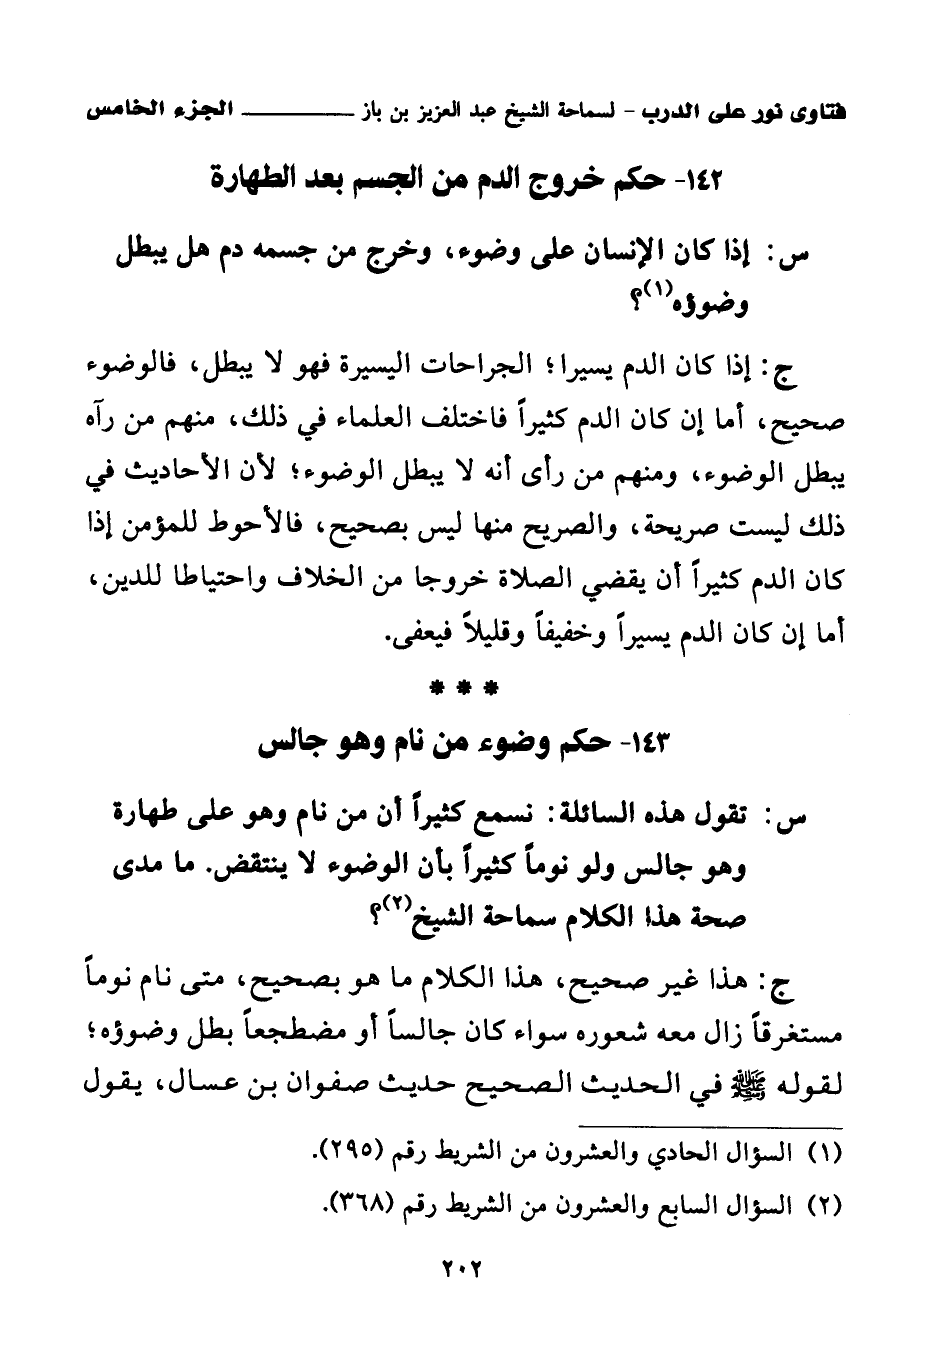 فتاوى نور على الدرب - لسماحة الشيخ عبد العزيز بن باز ــــــــــــ الجزء الخامس
١٤٢- حكم خروج الدم من الجسم بعد الطهارة
س: إذا كان الإنسان على وضوء، وخرج من جسمه دم هل يبطل
وضوؤه(١)؟
ج: إذا كان الدم يسيرا؛ الجراحات اليسيرة فهو لا يبطل، فالوضوء
صحيح، أما إن كان الدم كثيراً فاختلف العلماء في ذلك، منهم من رآه
يبطل الوضوء، ومنهم من رأى أنه لا يبطل الوضوء؛ لأن الأحاديث في
ذلك ليست صريحة، والصريح منها ليس بصحيح، فالأحوط للمؤمن إذا
كان الدم كثيراً أن يقضي الصلاة خروجا من الخلاف واحتياطا للدين،
أما إن كان الدم يسيراً وخفيفاً وقليلاً فيعفى.
* * *
١٤٣- حكم وضوء من نام وهو جالس
س: تقول هذه السائلة: نسمع كثيراً أن من نام وهو على طهارة
وهو جالس ولو نوماً كثيراً بأن الوضوء لا ينتقض. ما مدى
صحة هذا الكلام سماحة الشيخ(٢)؟
ج: هذا غير صحيح، هذا الكلام ما هو بصحيح، متى نام نوماً
مستغرقاً زال معه شعوره سواء كان جالساً أو مضطجعاً بطل وضوؤه؛
لقوله ﷺ في الحديث الصحيح حديث صفوان بن عسال، يقول
(١) السؤال الحادي والعشرون من الشريط رقم (٢٩٥).
(٢) السؤال السابع والعشرون من الشريط رقم (٣٦٨).
٢٠٢